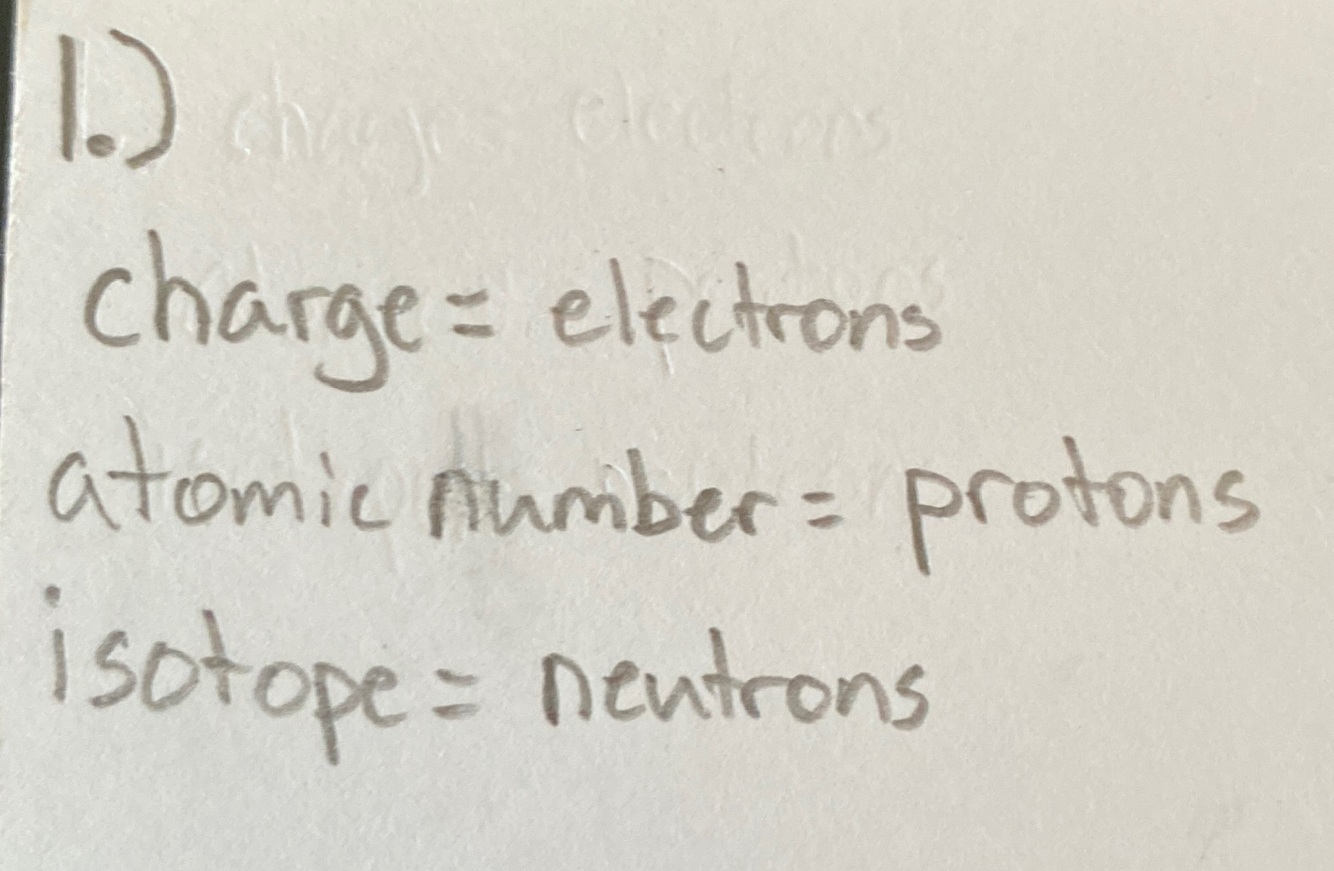 1.)
charge = electrons
atomic number = protons
isotope = neutrons